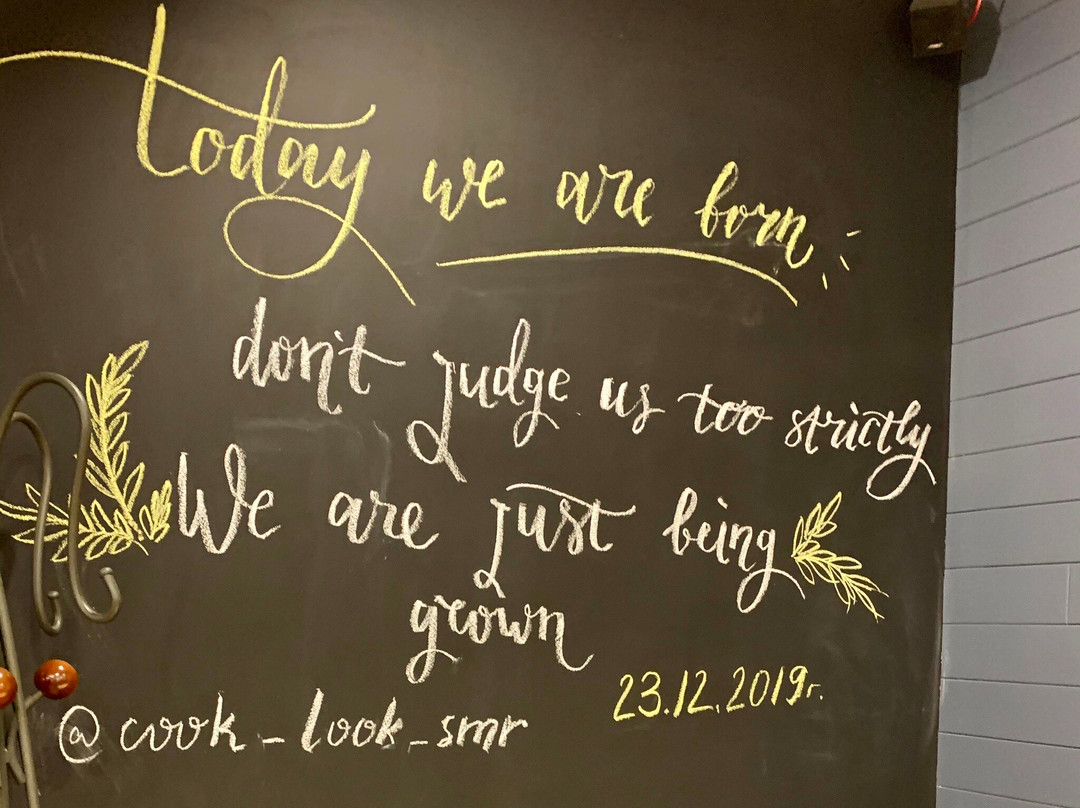 today we are born
don't judge us too strictly
We are just being
grown
23.12.2019г.
@cook_look_smr